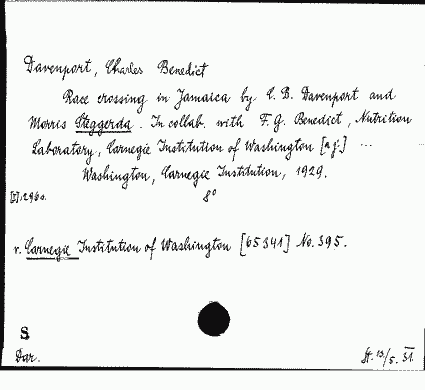 Davenport, Charles Benedict
Race crossing in Jamaica by C. B. Davenport and
Morris Steggerda. In collab. with F. G. Benedict, Nutrition
Laboratory, Carnegie Institution of Washington [a.j.] ...
Washington, Carnegie Institution, 1929.
8°
v. Carnegie Institution of Washington [65341] No. 395.
S
Dar.